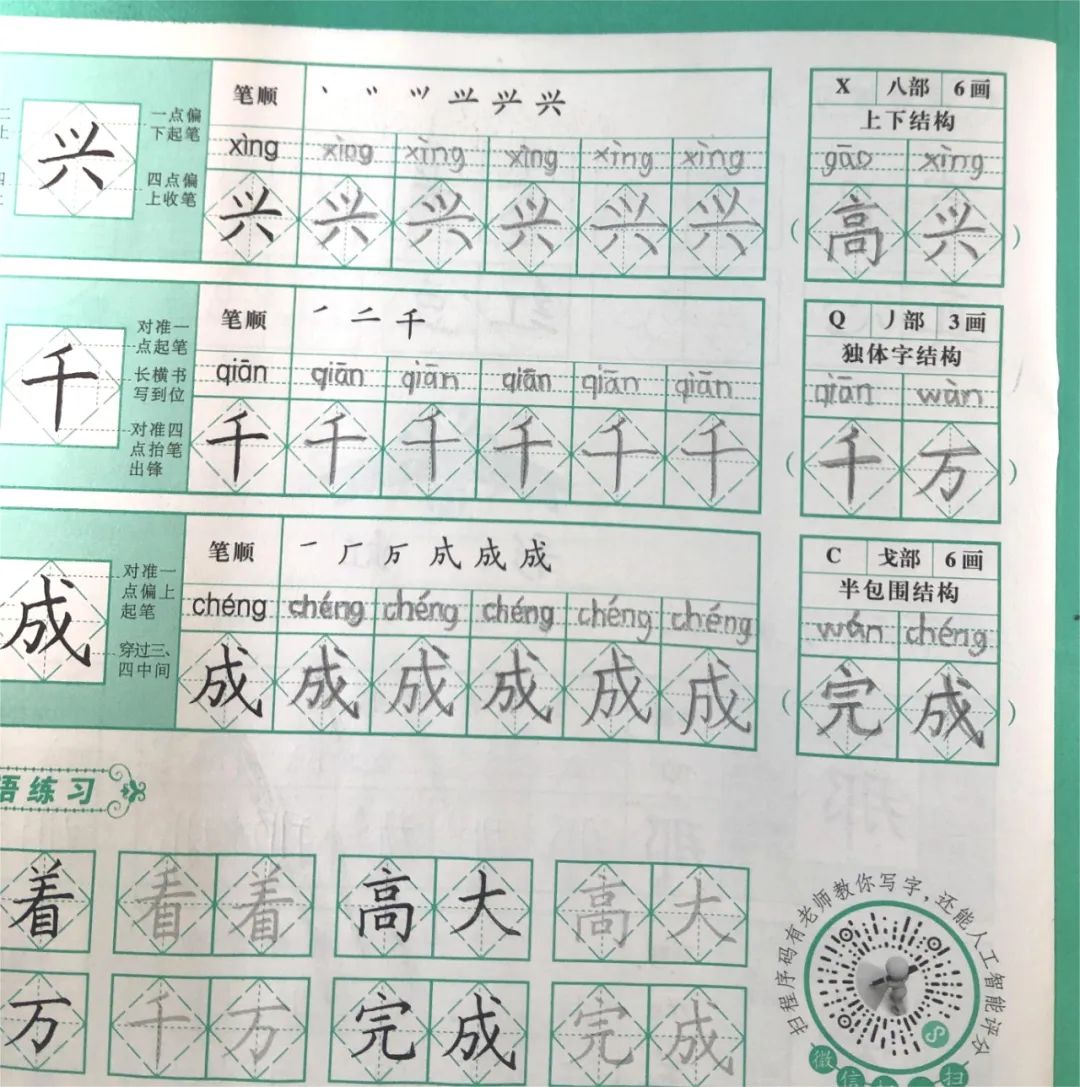 笔顺 丶 兴
一点偏下起笔
四点偏上收笔
兴
xìng xìng xìng xìng xìng xìng
兴 兴 兴 兴 兴 兴
X 八部 6画
上下结构
gāo xìng
(高兴)
笔顺 丿 二 千
对准一点起笔
长横书写到位
对准四点抬笔出锋
千
qiān qiān qiān qiān qiān qiān
千 千 千 千 千 千
Q 丿部 3画
独体字结构
qiān wàn
(千万)
笔顺 一 厂 成 成
对准一点偏上起笔
穿过三、四中间
成
chéng chéng chéng chéng chéng chéng
成 成 成 成 成 成
C 戈部 6画
半包围结构
wán chéng
(完成)
语练习
着 看着 高大 高大
万 千万 完成 完成
扫程序码有老师教你写字,还能人工智能评分
微信 扫